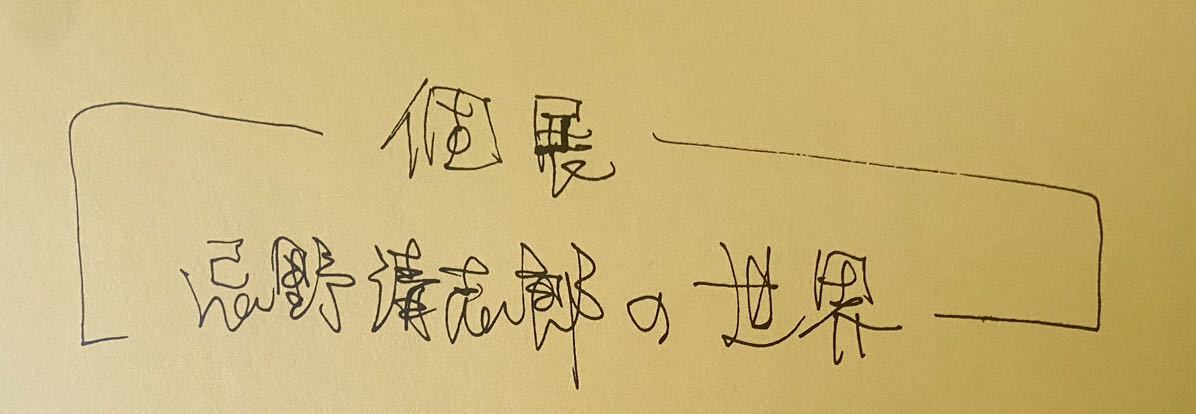 個展
忌野清志郎の世界